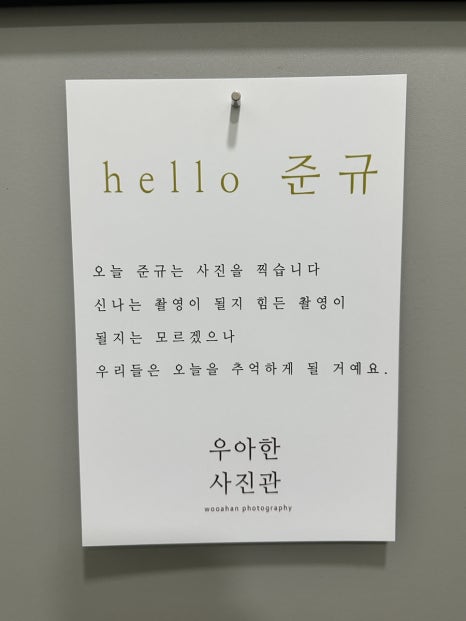 hello 준규
오늘 준규는 사진을 찍습니다
신나는 촬영이 될지 힘든 촬영이
될지는 모르겠으나
우리들은 오늘을 추억하게 될 거예요.
우아한
사진관
wooahan photography